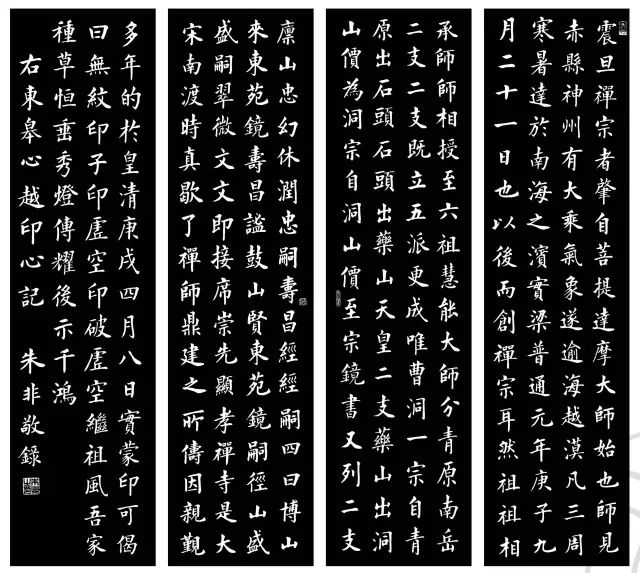 震旦禪宗者肇自菩提達摩大師始也師見
赤縣神州有大乘氣象遂逾海越漠凡三周
寒暑達於南海之濱實梁普通元年庚子九
月二十一日也以後而創禪宗耳然祖祖相
承師師相授至六祖慧能大師分青原南岳
二支二支既立五派更成唯曹洞一宗自青
原出石頭石頭出藥山天皇二支藥山出洞
山價為洞宗自洞山價至宗鏡書又列二支
廩山忠幻休潤忠嗣壽昌經經嗣四曰博山
來東苑鏡壽昌謐鼓山賢東苑鏡嗣徑山盛
盛嗣翠微文文即接席崇先顯孝禪寺是大
宋南渡時真歇了禪師鼎建之所儔因親覲
多年的於皇清庚戌四月八日實蒙印可偈
曰無紋印子印虛空印破虛空繼祖風吾家
種草恒垂秀燈傳耀後示千鴻
右東皋心越印心記 朱非敬錄